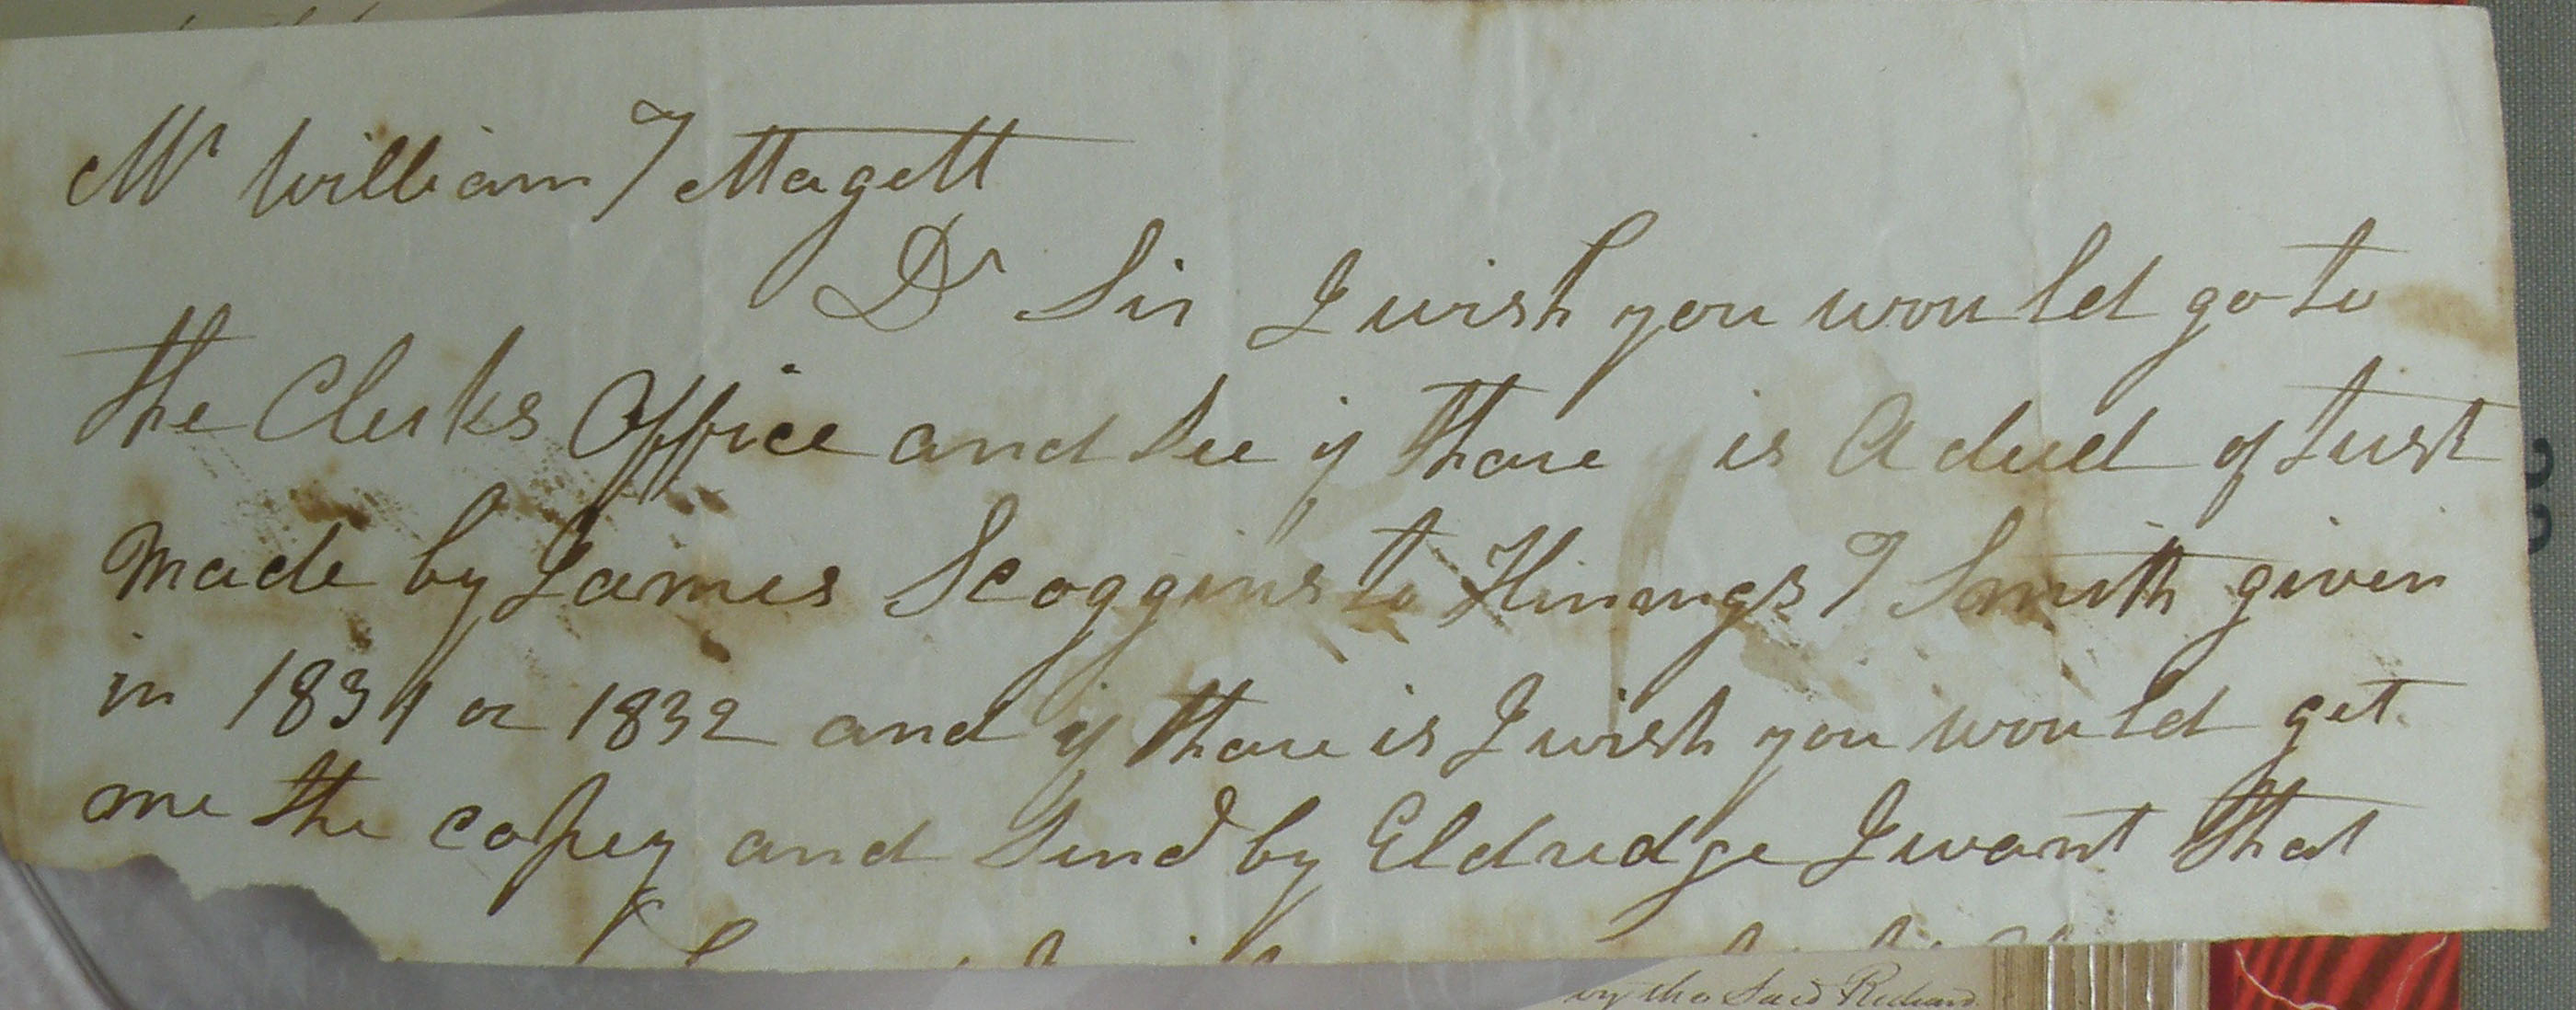 Mr William T Magett
Dr Sir I wish you would go to
the Clerks Office and See if thare is A deed of trust
Made by James Scoggins to T Smith given
in 1831 or 1832 and if thare is I wish you would get
me the copey and Send by Eldredge I want that
by the Said Richard